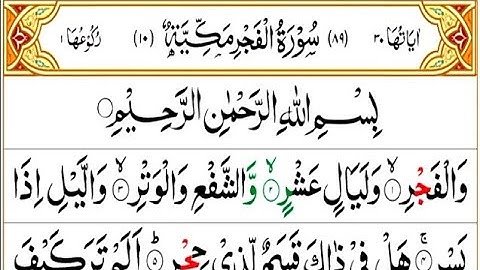 اٰيَاتُهَا ٣٠ (٨٩) سُوْرَةُ الْفَجْرِ مَكِّيَّةٌ (١٠) رُكُوْعُهَا ١
بِسْمِ اللهِ الرَّحْمٰنِ الرَّحِيْمِ
وَالْفَجْرِۙ ۱ وَلَيَالٍ عَشْرٍۙ ۲ وَّالشَّفْعِ وَالْوَتْرِۙ ۳ وَالَّيْلِ اِذَا
يَسْرِۚ ۴ هَلْ فِيْ ذٰلِكَ قَسَمٌ لِّذِيْ حِجْرٍ ۵ اَلَمْ تَرَ كَيْفَ